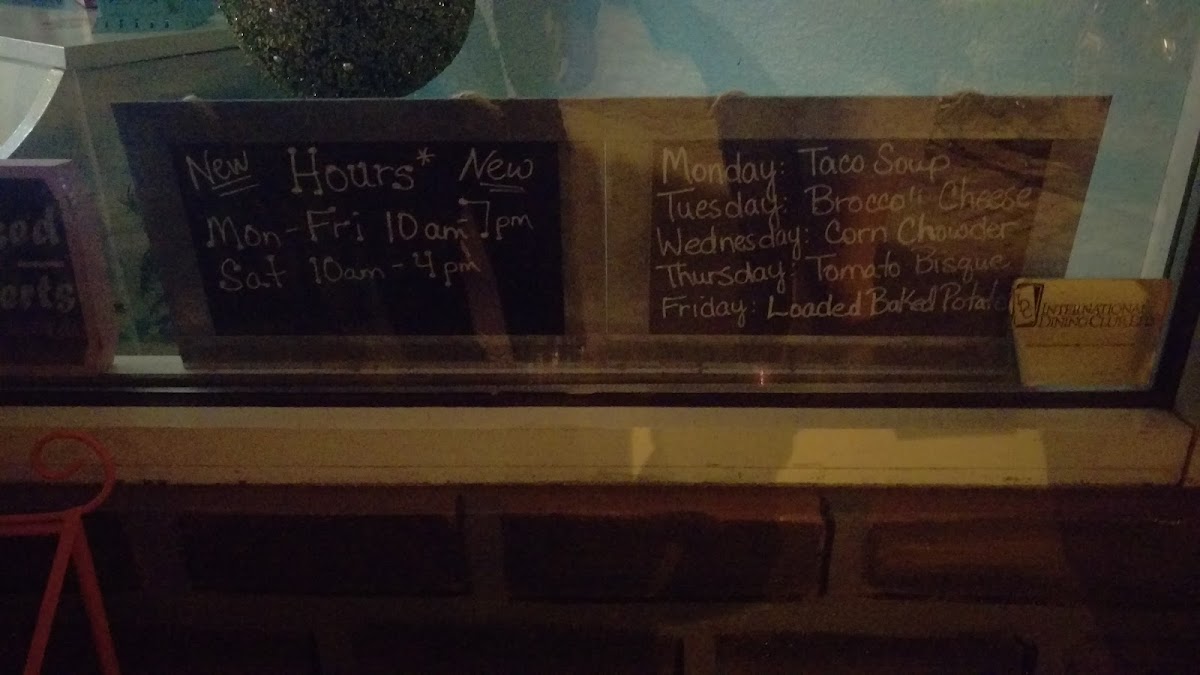 New Hours* New
Mon-Fri 10am-7pm
Sat 10am-4pm
Monday: Taco Soup
Tuesday: Broccoli Cheese
Wednesday: Corn Chowder
Thursday: Tomato Bisque
Friday: Loaded Baked Potato
INTERNATIONAL
DINING CLUB